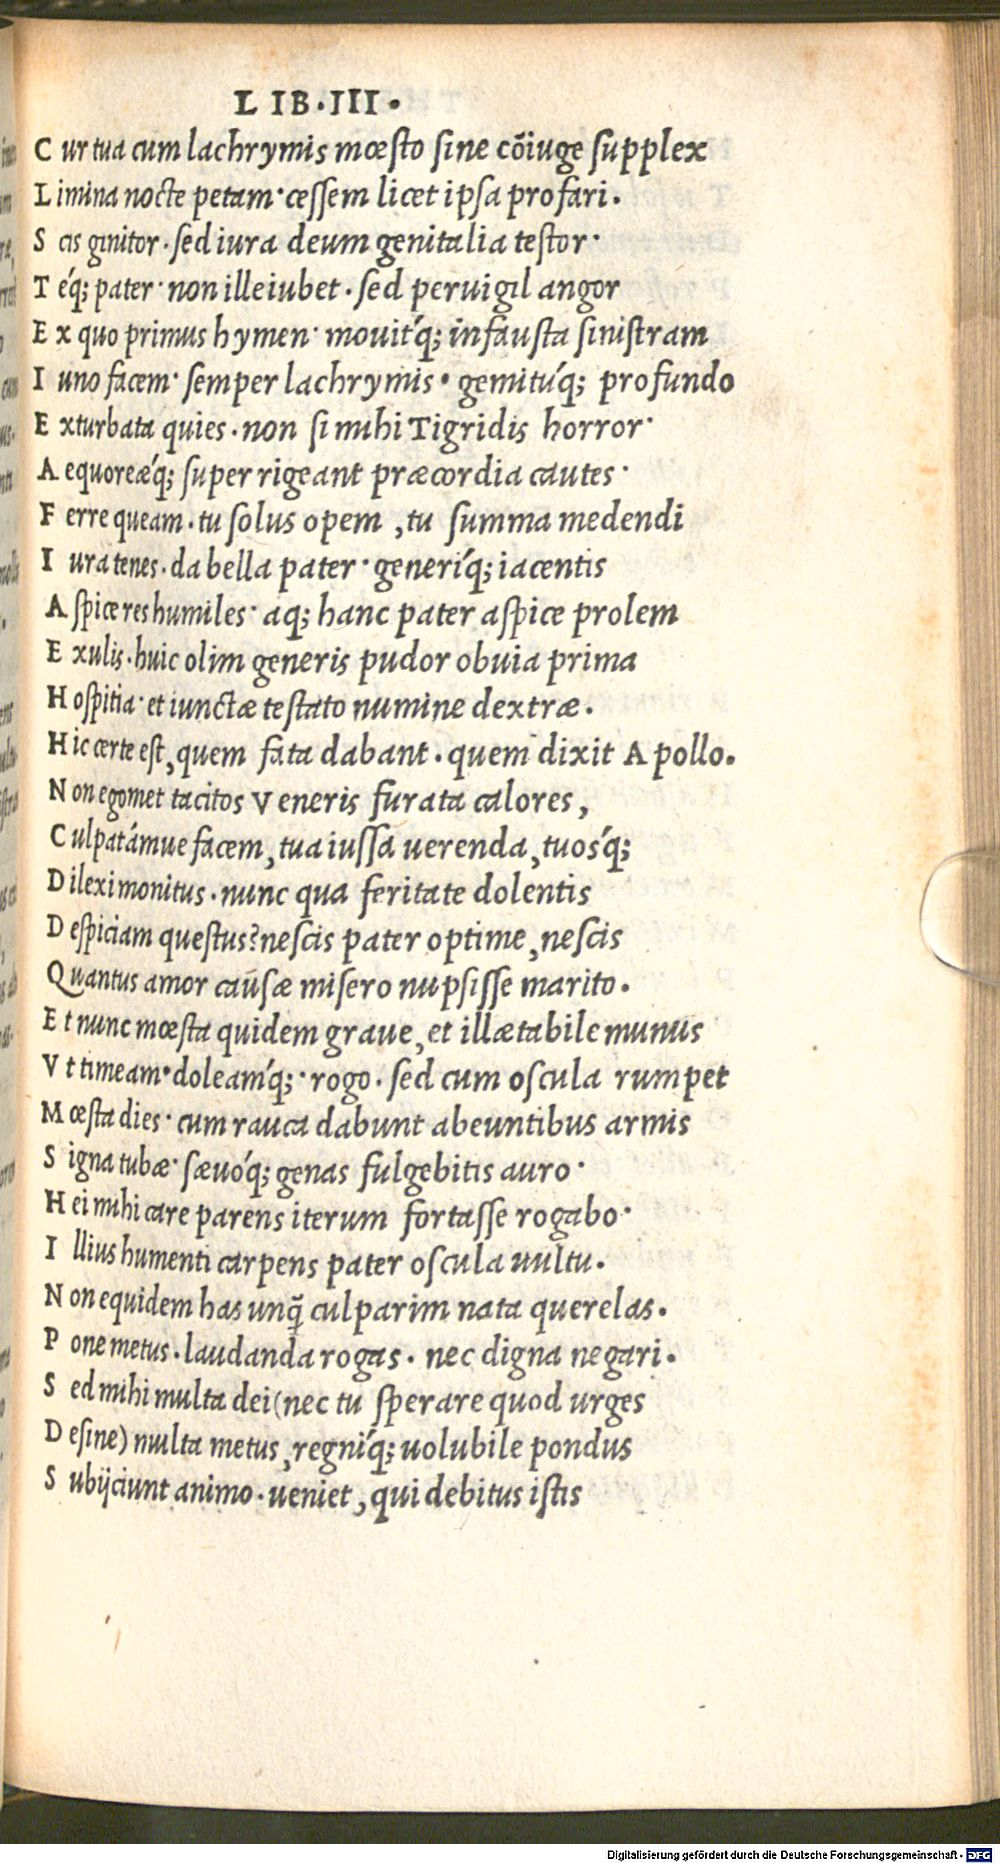 LIB·III·
Cur tua cum lachrymis mœsto sine cōiuge supplex
Limina nocte petam· cessem licet ipsa profari.
Scis ginitor· sed iura deum genitalia testor·
Teq́; pater· non ille iubet· sed peruigil angor
Ex quo primus hymen· mouitq́; infausta sinistram
Iuno facem· semper lachrymis· gemituq́; profundo
Exturbata quies· non si mihi Tigridis horror·
Aequoreæq́; super rigeant præcordia cautes·
Ferre queam· tu solus opem, tu summa medendi
Iura tenes· da bella pater· generiq́; iacentis
Aspice res humiles· aq; hanc pater aspice prolem
Exulis· huic olim generis pudor obuia prima
Hospitia· et iunctæ testato numine dextræ.
Hic certe est, quem fata dabant· quem dixit Apollo.
Non egomet tacitos Veneris furata calores,
Culpatámue facem, tua iussa uerenda, tuosq́;
Dilexi monitus· nunc qua feritate dolentis
Despiciam questus? nescis pater optime, nescis
Quantus amor causæ misero nupsisse marito.
Et nunc mœsta quidem graue, et illætabile munus
Vt timeam· doleamq́;· rogo· sed cum oscula rumpet
Mœsta dies· cum rauca dabunt abeuntibus armis
Signa tubæ· sæuoq́; genas fulgebitis auro·
Hei mihi care parens iterum fortasse rogabo·
Illius humenti carpens pater oscula uultu.
Non equidem has unq̃ culparim nata querelas.
Pone metus· laudanda rogas· nec digna negari.
Sed mihi multa dei (nec tu sperare quod urges
Desine) multa metus, regniq́; uolubile pondus
Subijciunt animo· ueniet, qui debitus istis
Digitalisierung gefördert durch die Deutsche Forschungsgemeinschaft - DFG